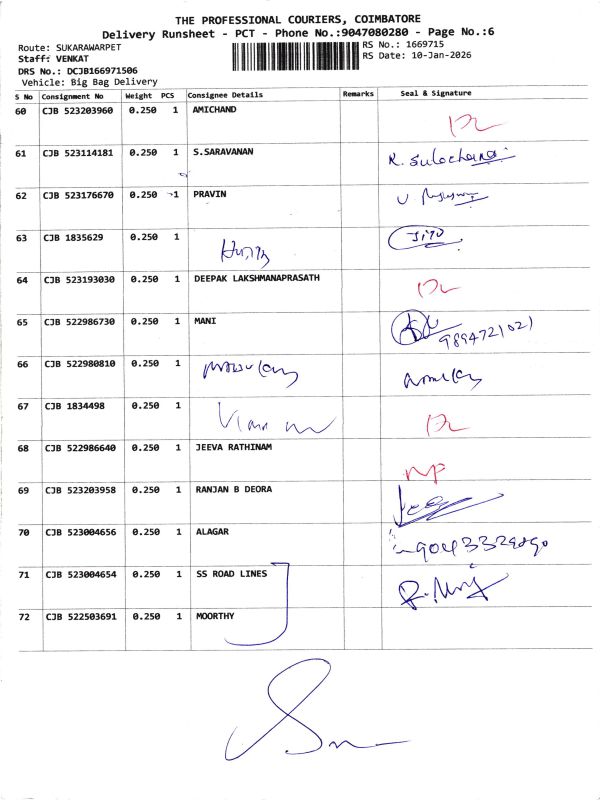 THE PROFESSIONAL COURIERS, COIMBATORE
Delivery Runsheet - PCT - Phone No.:9047080280 - Page No.:6
Route: SUKARAWARPET RS No.: 1669715
Staff: VENKAT RS Date: 10-Jan-2026
DRS No.: DCJB166971506
Vehicle: Big Bag Delivery
S No Consignment No Weight PCS Consignee Details Remarks Seal & Signature
60 CJB 523203960 0.250 1 AMICHAND
61 CJB 523114181 0.250 1 S.SARAVANAN R. Sulochana
62 CJB 523176670 0.250 1 PRAVIN
63 CJB 1835629 0.250 1
64 CJB 523193030 0.250 1 DEEPAK LAKSHMANAPRASATH
65 CJB 522986730 0.250 1 MANI 9894721021
66 CJB 522980810 0.250 1
67 CJB 1834498 0.250 1
68 CJB 522986640 0.250 1 JEEVA RATHINAM
69 CJB 523203958 0.250 1 RANJAN B DEORA
70 CJB 523004656 0.250 1 ALAGAR
71 CJB 523004654 0.250 1 SS ROAD LINES
72 CJB 522503691 0.250 1 MOORTHY